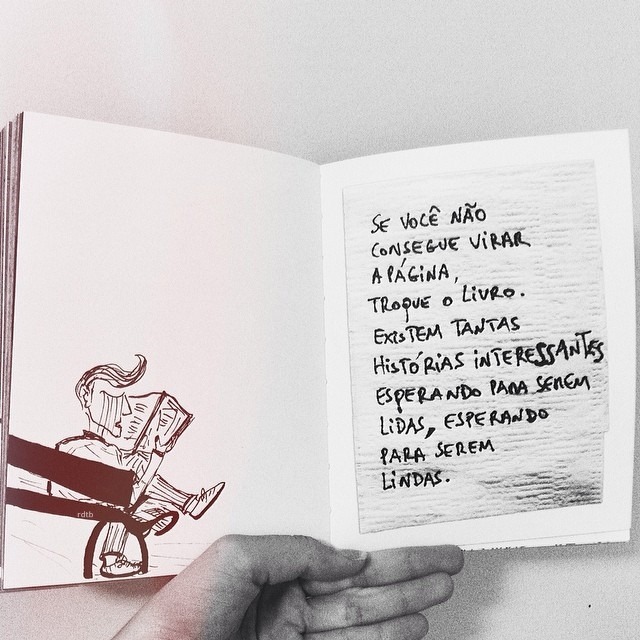 SE VOCÊ NÃO
CONSEGUE VIRAR
A PÁGINA,
TROQUE O LIVRO.
EXISTEM TANTAS
HISTÓRIAS INTERESSANTES
ESPERANDO PARA SEREM
LIDAS, ESPERANDO
PARA SEREM
LINDAS.
rdtb